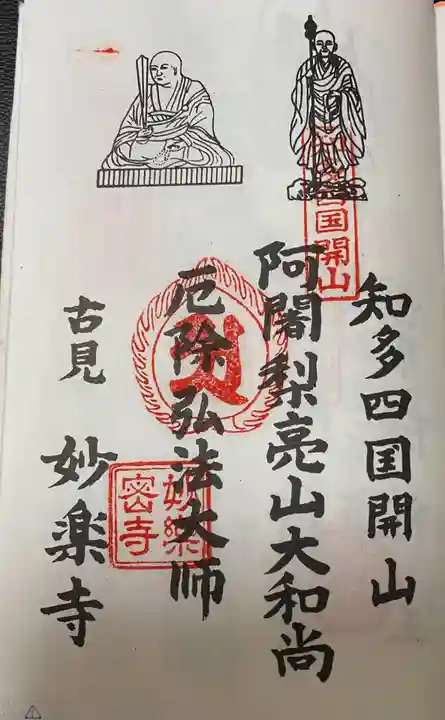 知多四国開山
阿闍梨亮山大和尚
厄除弘法大師
古見 妙楽寺
四国開山
妙樂密寺